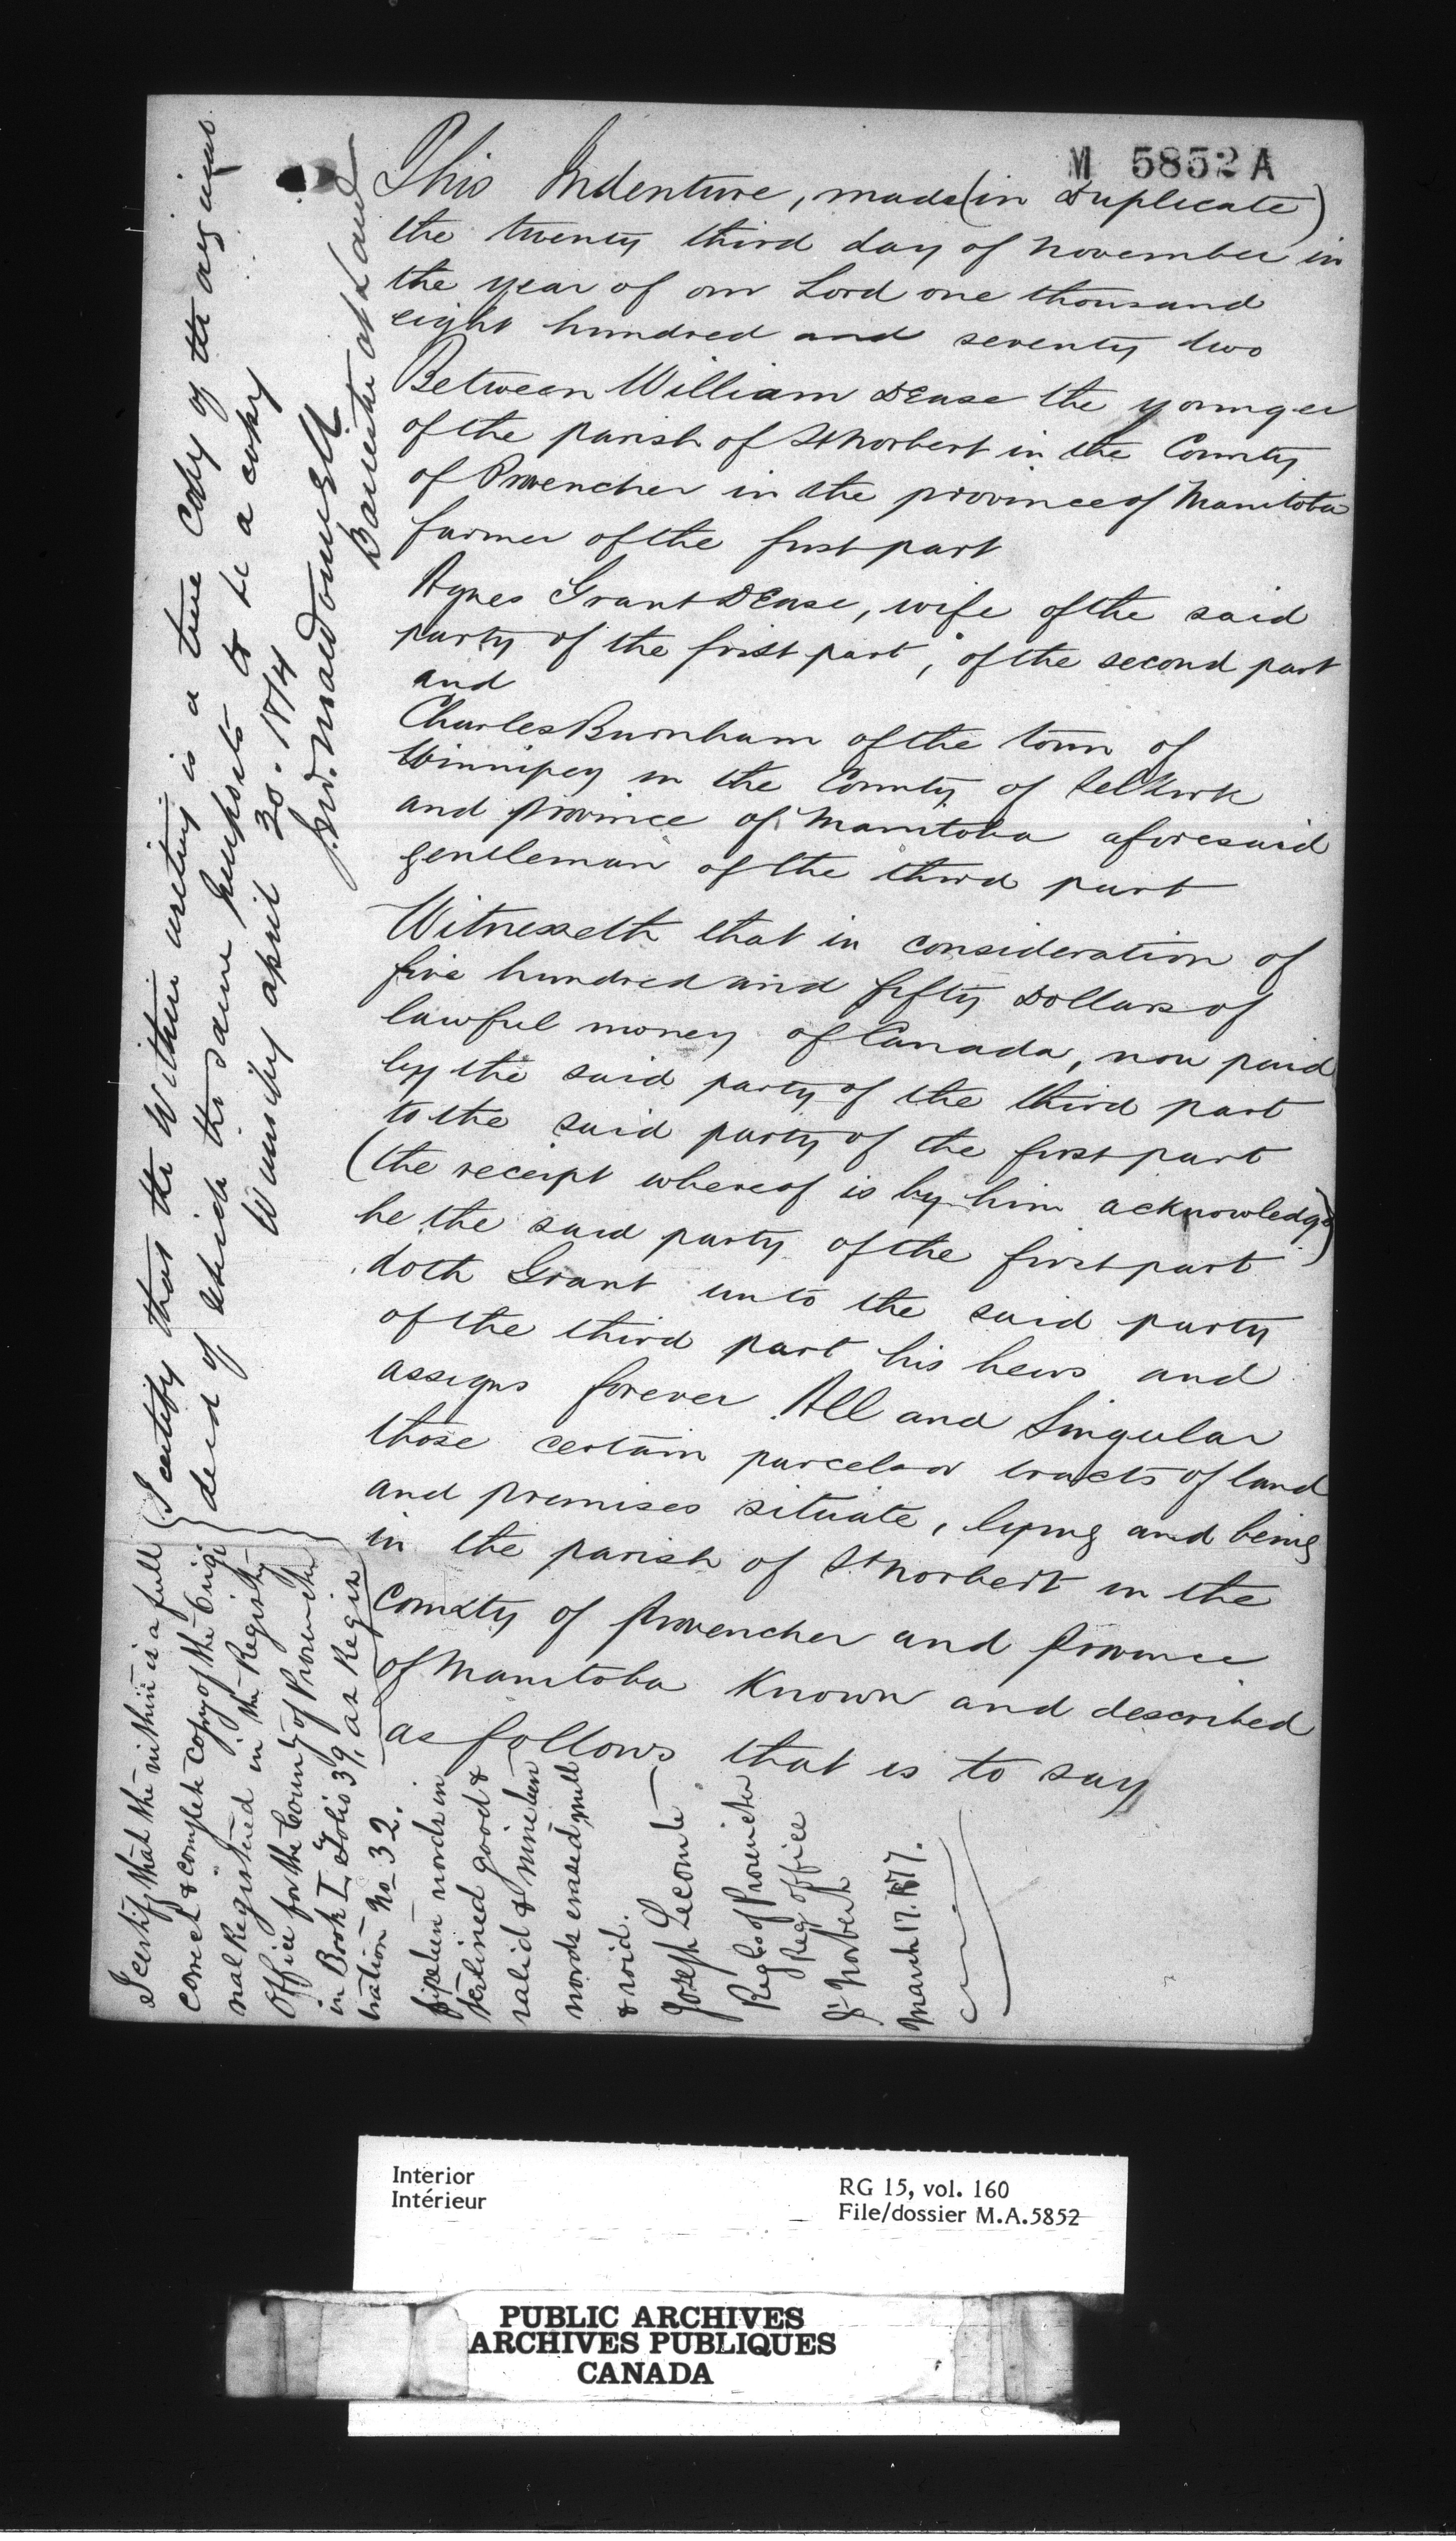 M 5852 A
This Indenture, made (in Duplicate)
the twenty third day of November in
the year of our Lord one thousand
eight hundred and seventy two
Between William DEase the younger
of the parish of St Norbert in the County
of Provencher in the province of Manitoba
farmer of the first part
Agnes Grant DEase, wife of the said
party of the first part, of the second part
and
Charles Burnham of the town of
Winnipeg in the County of Selkirk
and province of Manitoba aforesaid
gentleman of the third part
Witnesseth that in consideration of
five hundred and fifty Dollars of
lawful money of Canada, now paid
by the said party of the third part
to the said party of the first part
(the receipt whereof is by him acknowledged)
he the said party of the first part
doth Grant unto the said party
of the third part his heirs and
assigns forever All and Singular
those certain parcels or tracts of land
and premises situate, lying and being
in the parish of St Norbert in the
County of Provencher and province
of Manitoba Known and described
as follows that is to say
I certify that the within writing is a true copy of the original
deed of which the same purports to be a copy
Winnipeg april 30. 1874
Barrister at Law
I certify that the within is a full
correct & complete copy of the Origi
nal Registered in the Registry
Office for the County of Provencher
in Book I, Folio 39, as Regis
tration No 32.
fifteen words in
terlined good &
valid & nineteen
words erased null
& void.
Joseph Lecomte
Regr of Provencher
Reg office
St Norbert
March 17. 1877.
Interior
Intérieur
RG 15, vol. 160
File/dossier M.A.5852
PUBLIC ARCHIVES
ARCHIVES PUBLIQUES
CANADA